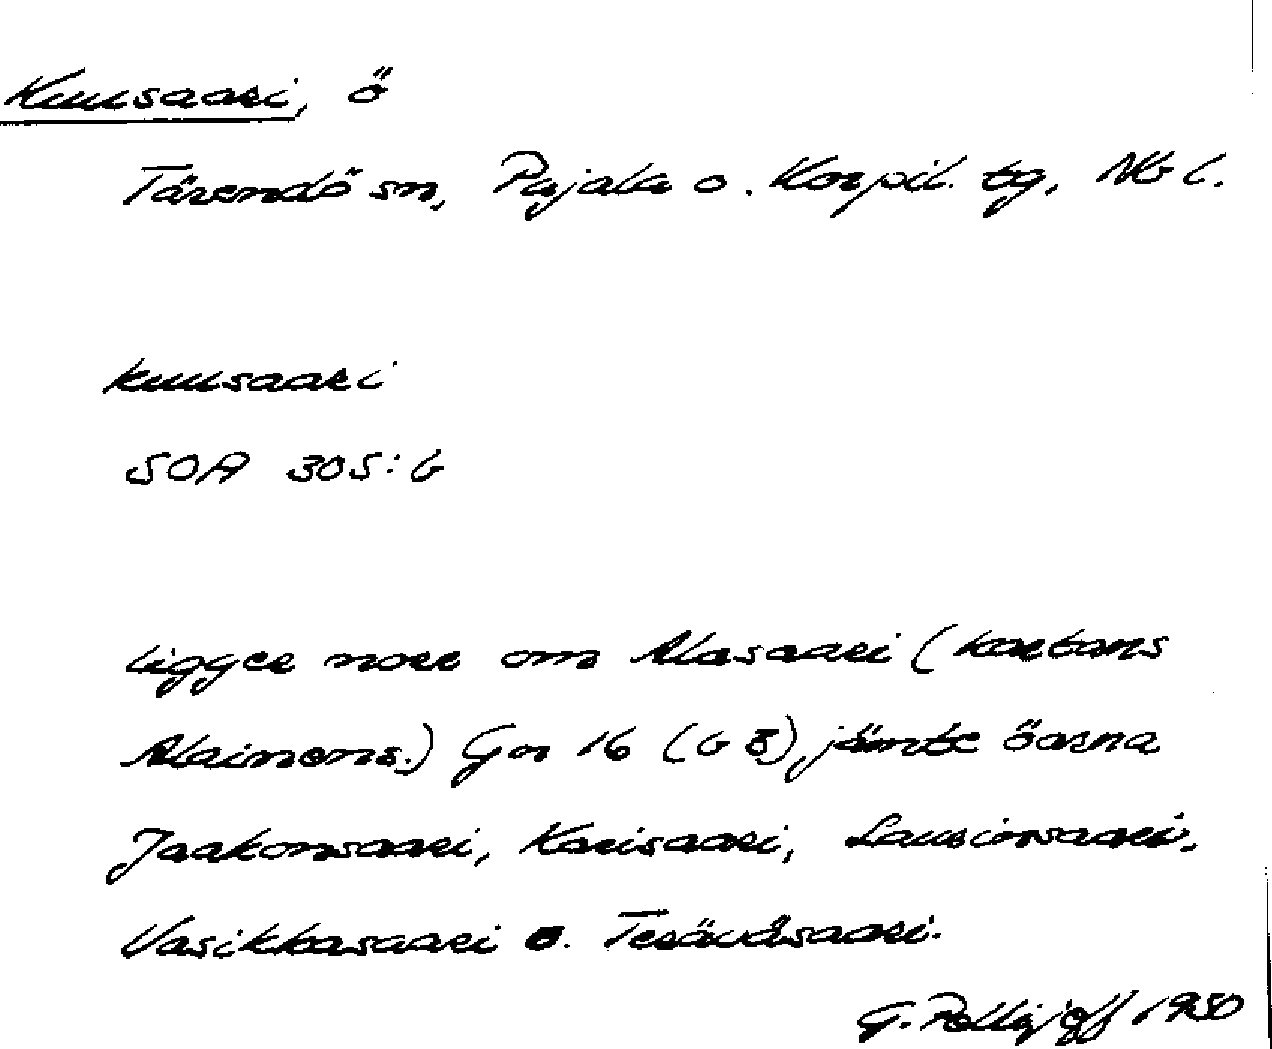 Kuusaari, ö
Tärendö sn, Pajala o. Korpil. tg, Nb l.
kuusaari
SOA 305:6
ligger norr om Alasaari (kartans
Alainens.) Gn 16 (G 8), jämte öarna
Jaakonsaari, Karisaari, Lausinsaari,
Vasikkasaari o.
G. 1950